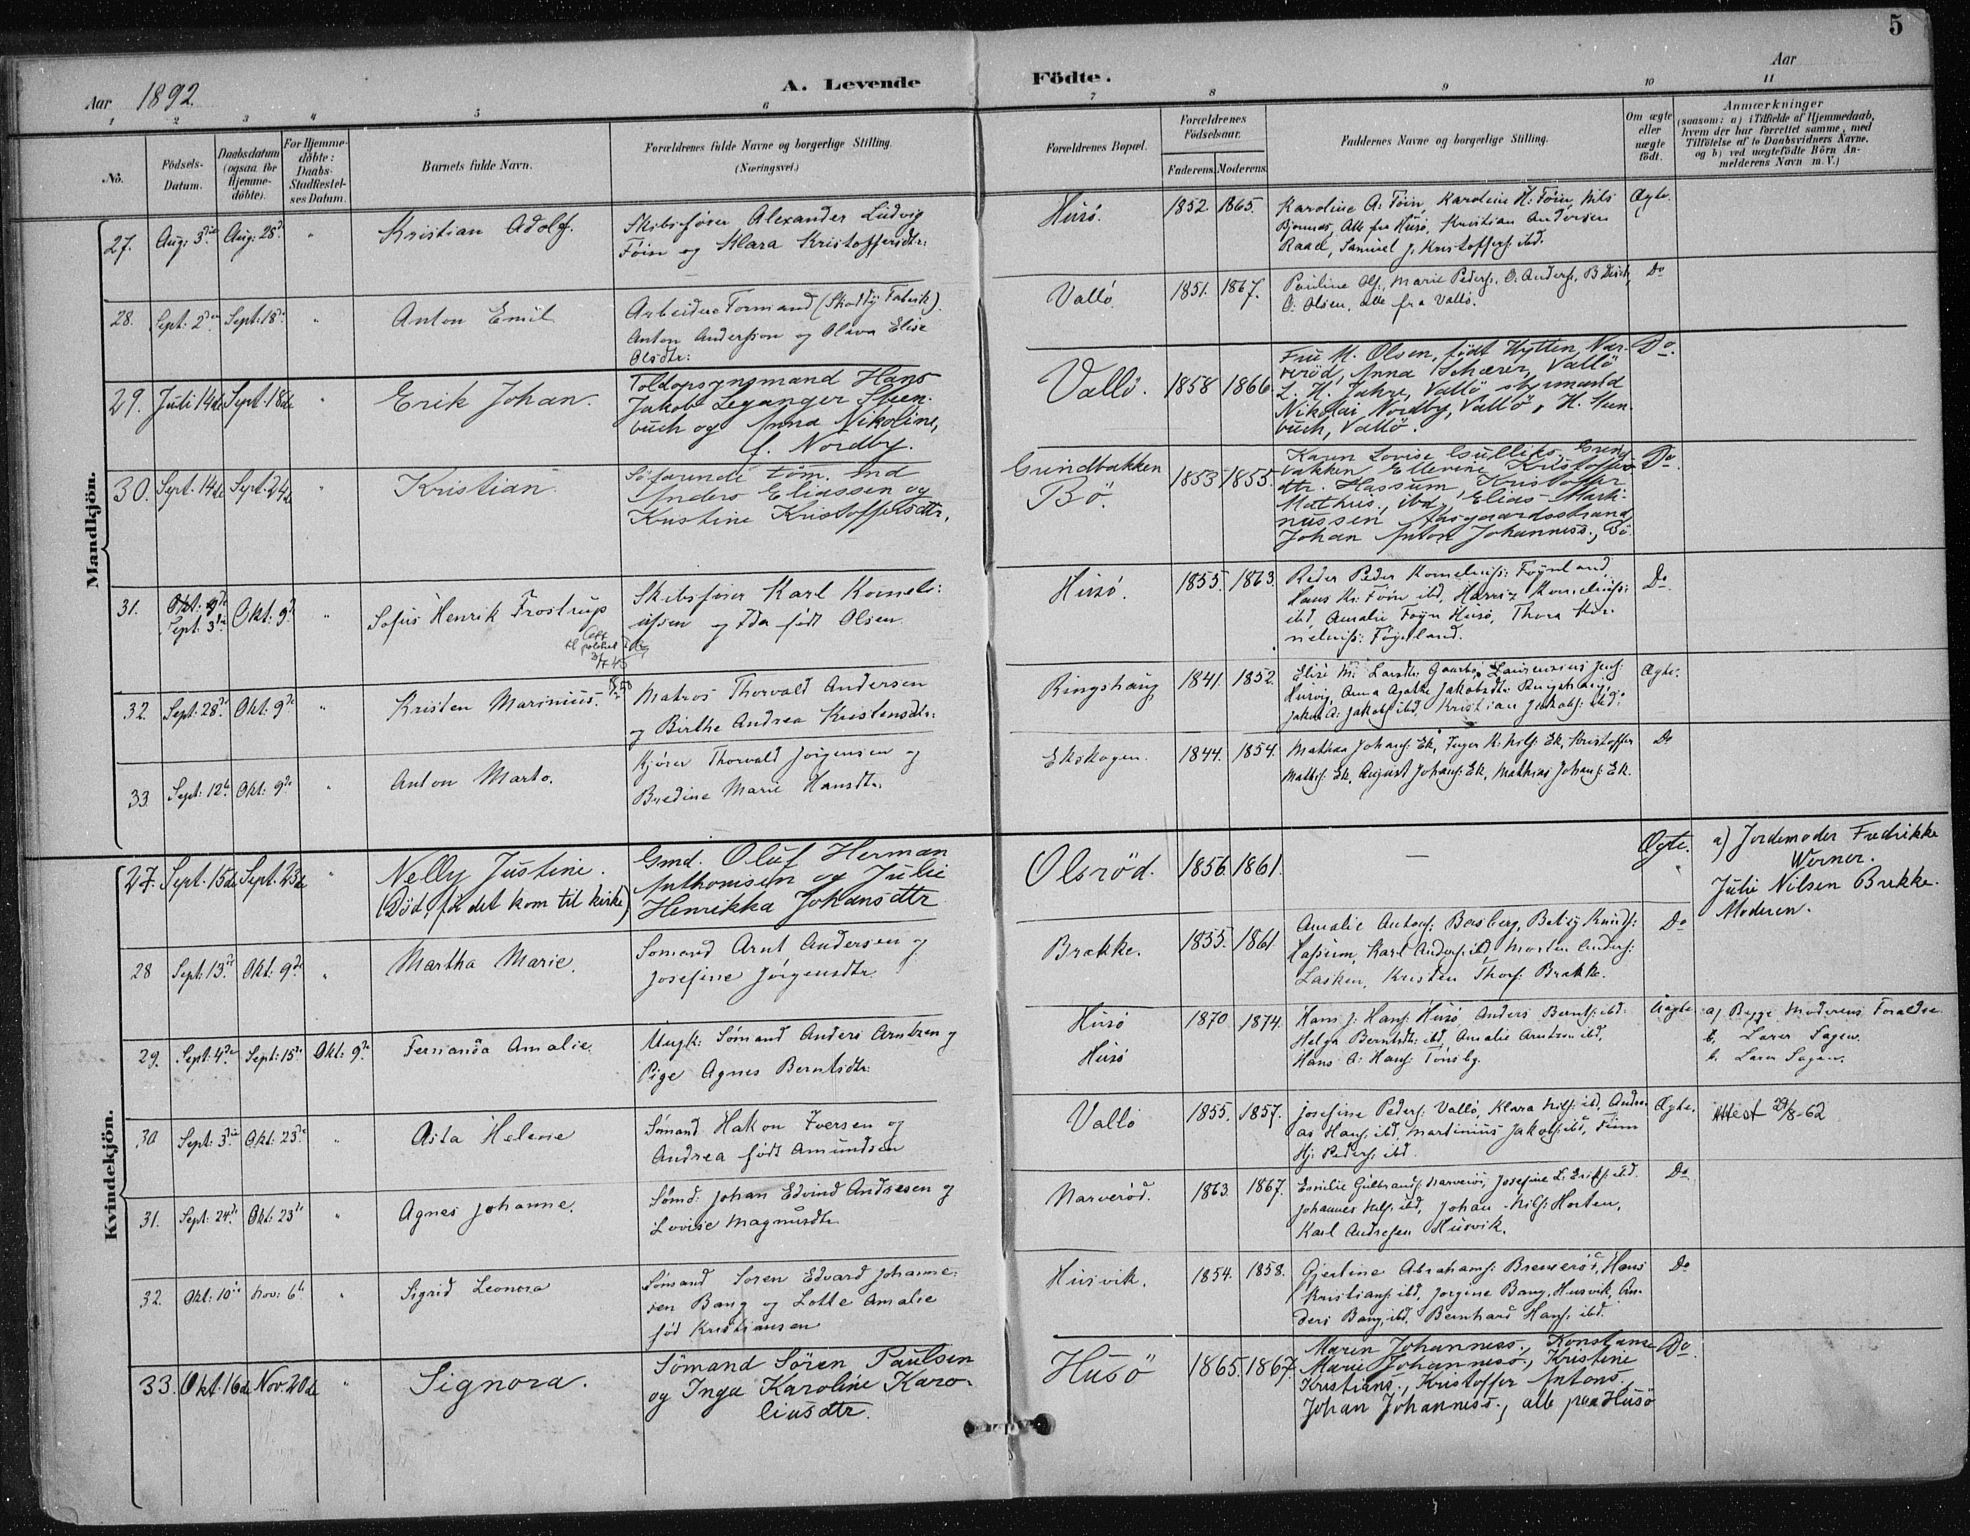 5
Aar 1892.
A. Levende Födte.
Aar
1 2 3 4 5 6 7 8 9 10 11
No.
Födsels-Datum.
Daabsdatum (ogsaa for Hjemmedöbte).
For Hjemmedöbte: Daabs-Stadfæstelses Datum.
Barnets fulde Navn.
Forældrenes fulde Navne og borgerlige Stilling. (Næringsvei.)
Forældrenes Bopæl.
Forældrenes Födselsaar.
Faderens. Moderens.
Faddernes Navne og borgerlige Stilling.
Om ægte eller uægte födt.
Anmærkninger
(saasom: a) i Tilfælde af Hjemmedaab,
hvem der har forrettet samme, med
Tilföielse af to Daabsvidners Navne,
og b) ved uægtefödte Börn Anmelderens Navn m. V.)
Mandkjön.
27. Aug: 3die Aug: 28de " Kristian Adolf. Skibsfører Alexander Ludvig
Føin og Klara Kristoffersdtr:
Husö. 1852 1865. Karoline A. Föin, Karoline H. Föin, Nils
Bjonnes, Alle fra Husö, Kristian Andersen
Raael, Samuel J. Kristoffers ibd.
Ægte.
28. Sept: 2den Sept: 18de " Anton Emil Arbeider Formand (Skoddy Fabrik).
Anton Anderson og Olava Elise
Olsdtr:
Vallö 1851. 1867. Pauline Ols, Marie Peders, O. Anders,
O. Olsen, alle fra Vallö.
Do
29. Juli 14de Sept. 18de " Erik Johan. Toldopsynsmand Hans
Jakob Leganger Steen-
buch og Anna Nikoline,
f. Nordby.
Vallö. 1858 1866 Fru M. Olsen, født Hytten, Nar-
verød, Anna Schærer, Vallö
L. H. Jahre, Vallö styrmand
Nikolai Nordby, Vallö, H. Steen-
buch, Vallö.
Do.
30. Sept. 14de Sept. 24de " Kristian. Söfarende töm. md
Anders Eliassen og
Kristine Kristoffersdtr.
Grindbakken
Bö. 1853 1855. Karen Lovise Gulliks., Grind-
bakken Ellevine Kristoffers-
dtr. Hassum, Kristoffer
Mathis., ibd, Elias Marti-
nussen Aasgaardsstrand,
Johan Anton Johanness., Bö.
Do.
31. Okt: 9de
Sept: 3die Okt: 9de " Sofus Henrik Frostrup Skibsfører Karl Korneli-
ussen og Ida født Olsen
Husö. 1855. 1863. Reder Peder Korneliuss: Föynland,
Hans Kr. Föin ibd, Korneliuss:
ibd Amalie Föyn Husö, Thora Kor-
neliuss: Föynland.
Do
32. Sept: 28de Okt: 9de " Kristen Marinius. Matros Thorvald Andersen
og Birthe Andrea Kristensdtr:
Ringshaug 1841. 1852. Elise M. Larsdtr Gaarbo, Laurenzius Jens:
Husvig, Anna Agathe Jakobsdtr: Ringshaug,
Jakob A: Jakobs ibd, Kristian Jakobs: ibd.
Ægte.
33. Sept: 12te Okt: 9de " Anton Marto. Kjører Thorvald Jörgensen og
Bredine Marie Hansdtr.
Ekskogen. 1844. 1854. Mathea Johans: Ek, Inger K. Nils: Ek, Kristoffer
Maths: Ek, August Johans: Ek, Mathias Johans: Ek.
Do
Kvindekjön.
27. Sept. 15de Sept. 23de " Nelly Justine.
(Död, för det kom til kirke)
Gmd. Oluf Herman
Anthonisen og Julie
Henrikka Johansdtr.
Olsröd. 1856 1861. — Ægte.
a) Jordemoder Fredrikke
Werner.
Julie Nilsen Brekke.
Moderen.
28 Sept: 13de Okt: 9de " Martha Marie. Sømand Arnt Andersen og
Josefine Jörgensdtr
Brække. 1855. 1861. Amalie Antons: Basberg, Betsy Knuds:
Hassum, Karl Anders: ibd, Morten Anders:
Lasken, Kristen Thors: Brække.
Do
29. Sept: 4de Sept: 15de Okt: 9de Fernanda Amalie. Ungk: Sømand Anders Arntzen og
Pige Agnes Berntsdtr:
Husö
Husö 1870 1874. Hans J. Hans: Husö Anders Bernts: ibd:
Helga Berntsdtr: ibd, Amalie Arntsen ibd,
Hans A: Hans: Tönsbg.
Uægte a) Begge Moderens Forældre
b, Lærer Sagen.
b. Lærer Sagen.
30 Sept: 3die Okt: 23de " Asta Helene Sømand Hakon Iversen og
Andrea født Amundsen
Vallö 1855. 1857. Josefine Peders: Vallö, Klara Nils: ibd, Andre-
as Hans: ibd, Martinius Jakobs: ibd, Finn
Hj: Peders: ibd.
Ægte. Attest 29/8-62
31. Sept: 24de Okt: 23de " Agnes Johanne. Sømd: Johan Edvind Andresen og
Lovise Magnusdtr
Narveröd. 1863. 1867. Emilie Gulbrands: Narveröd, Josefine L. Eriks: ibd.
Johannes Nils: ibd, Johan Nils: Horten,
Karl Andresen Husvik.
Do
32. Okt: 10de Nov: 6te " Sigrid Leonora Sømand Soren Edvard Johanne-
sen Bang og Lotte Amalie
fød Kristiansen
Husvik. 1854. 1858. Gjertine Abrahams: Breveröd, Hans
Kristians: ibd, Jorgine Bang, Husvik, An-
ders Bang, ibd, Bernhard Hans: ibd.
Do
33. Okt. 16de Nov. 20de " Signora. Sömand Sören Paulsen
og Inga Karoline Karo-
liusdtr.
Husö 1865. 1867. Maren Johanness., Konstanse
Marie Johanness., Kristine
Kristians., Kristoffer Antons.,
Johan Johanness., alle paa Husö
Do